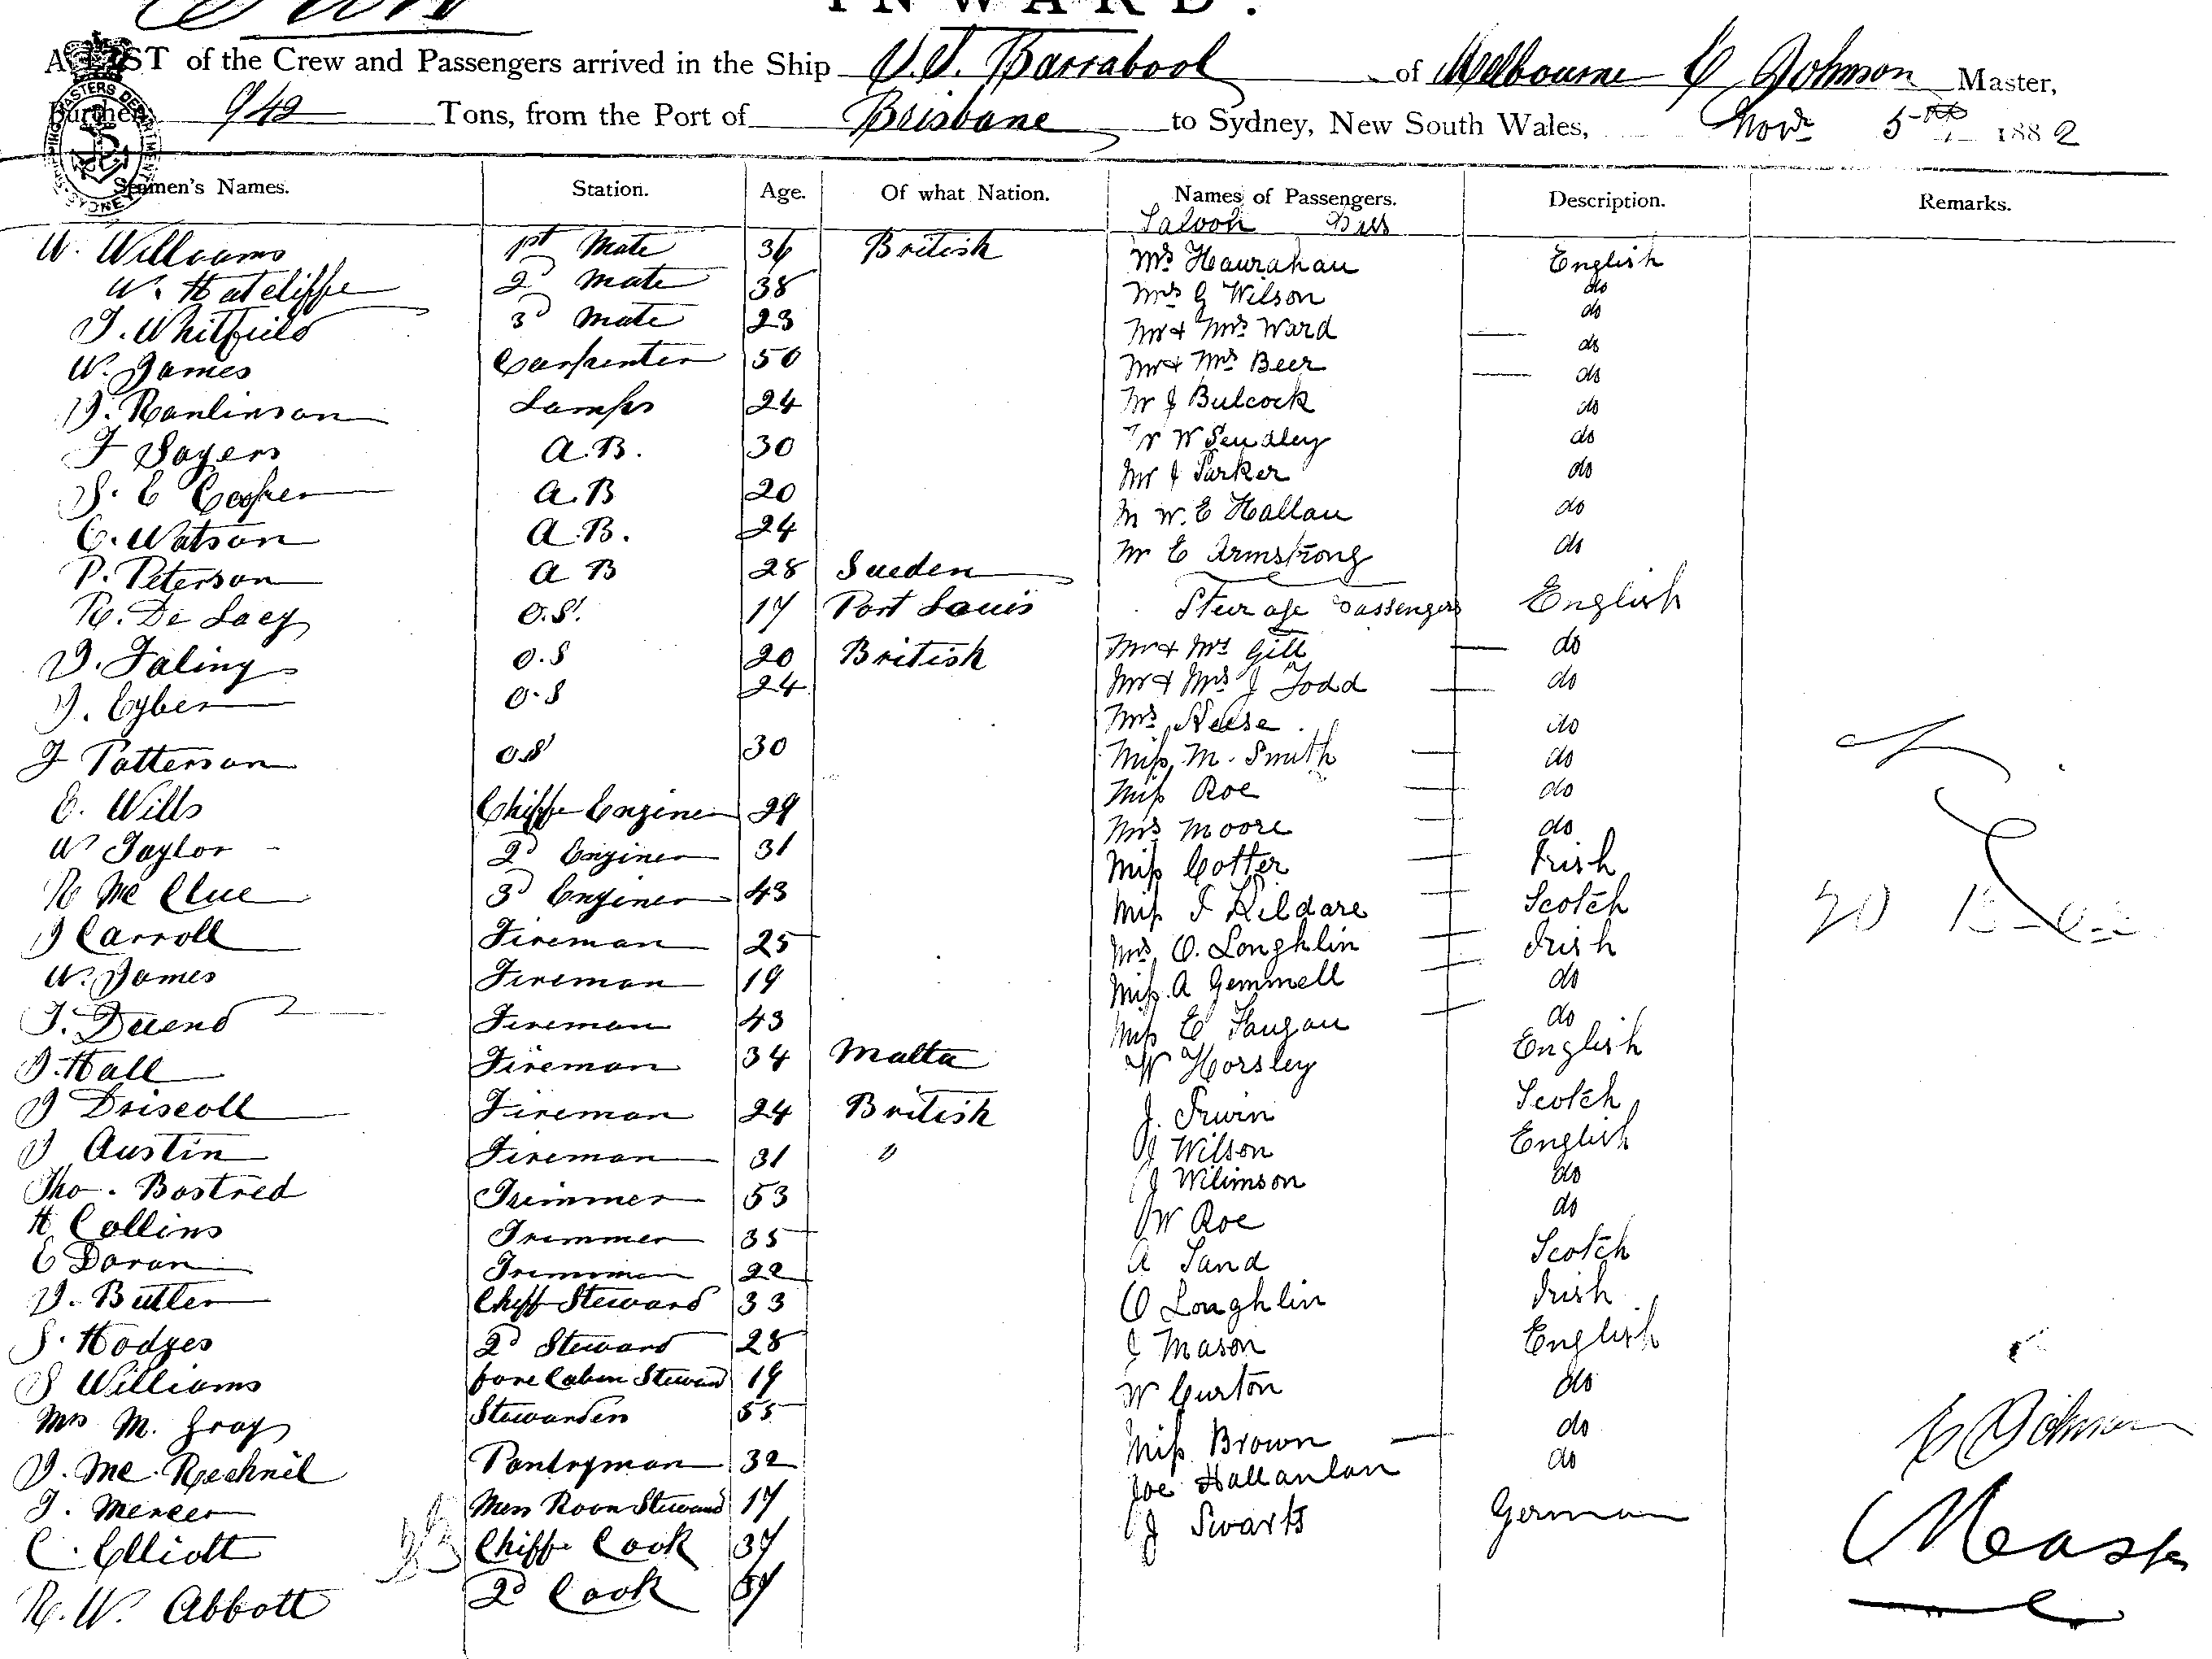 INWARD.
A LIST of the Crew and Passengers arrived in the Ship S.S. Barrabool of Melbourne C Johnson Master,
Burthen 942 Tons, from the Port of Brisbane to Sydney, New South Wales, Novr 5th 1882
SHIPPING MASTERS DEPARTMENT SYDNEY
Seamen's Names. Station. Age. Of what Nation. Names of Passengers. Description. Remarks.
Saloon
W. Williams 1st Mate 36 British Mrs Haurahau English
W. Hatcliffe 2d Mate 38 Mrs G Wilson do
J. Whitfield 3d Mate 23 Mr & Mrs Ward — do
W. James Carpenter 50 Mr & Mrs Beer — do
J. Ranlinson Lamps 24 Mr J Bulcock do
F Sayers A.B. 30 Mr W do
S. E Cooper A.B 20 Mr J Parker do
C. Watson A.B. 24 Mr W. E Hallau do
P. Peterson A B 28 Sueden Mr E Armstrong do
R. De Lacy O.S. 17 Port Louis Steerage Passengers English
J. Faling O.S 20 British Mr & Mrs Gill — do
J. Eyber O.S 24 Mr & Mrs J Todd — do
J Patterson O.S 30 Mrs do
E. Wills Chiffe Enginer 29 Miss M. Smith — do
W Taylor 2d Enginer 31 Miss Roe — do
R Mc Clue 3d Enginer 43 Mrs Moore — do
J Carroll Fireman 25 Miss Cotter — Irish
W. James Fireman 19 Miss J Kildare — Scotch
J. Fireman 43 Mrs O. Loughlin — Irish
J. Hall Fireman 34 Malta Miss A Gemmell — do
J Driscoll Fireman 24 British Miss E Faugau — do
J Austin Fireman 31 " W Horsley English
Tho. Bostred Trimmer 53 J. Irwin Scotch
H Collins Trimmer 35 J Wilson English
E Doran Trimmer 22 J Wilimson do
J. Butler Chiff Steward 33 W Roe do
S. Hodges 2d Steward 28 A Sand Scotch
S Williams fore Cabin Steward 19 O Loughlin Irish
Mrs M. Gray Stewardess 55 J Mason English
J. Mc. Pantryman 32 W Curton do
J. Mercer Mess Room Steward 17 Miss Brown — do
C. Elliott Chiffe Cook 37 Joe Hallanlan do
R. W. Abbott 2d Cook 37 J Swarts German
33
20
C Johnson
Master